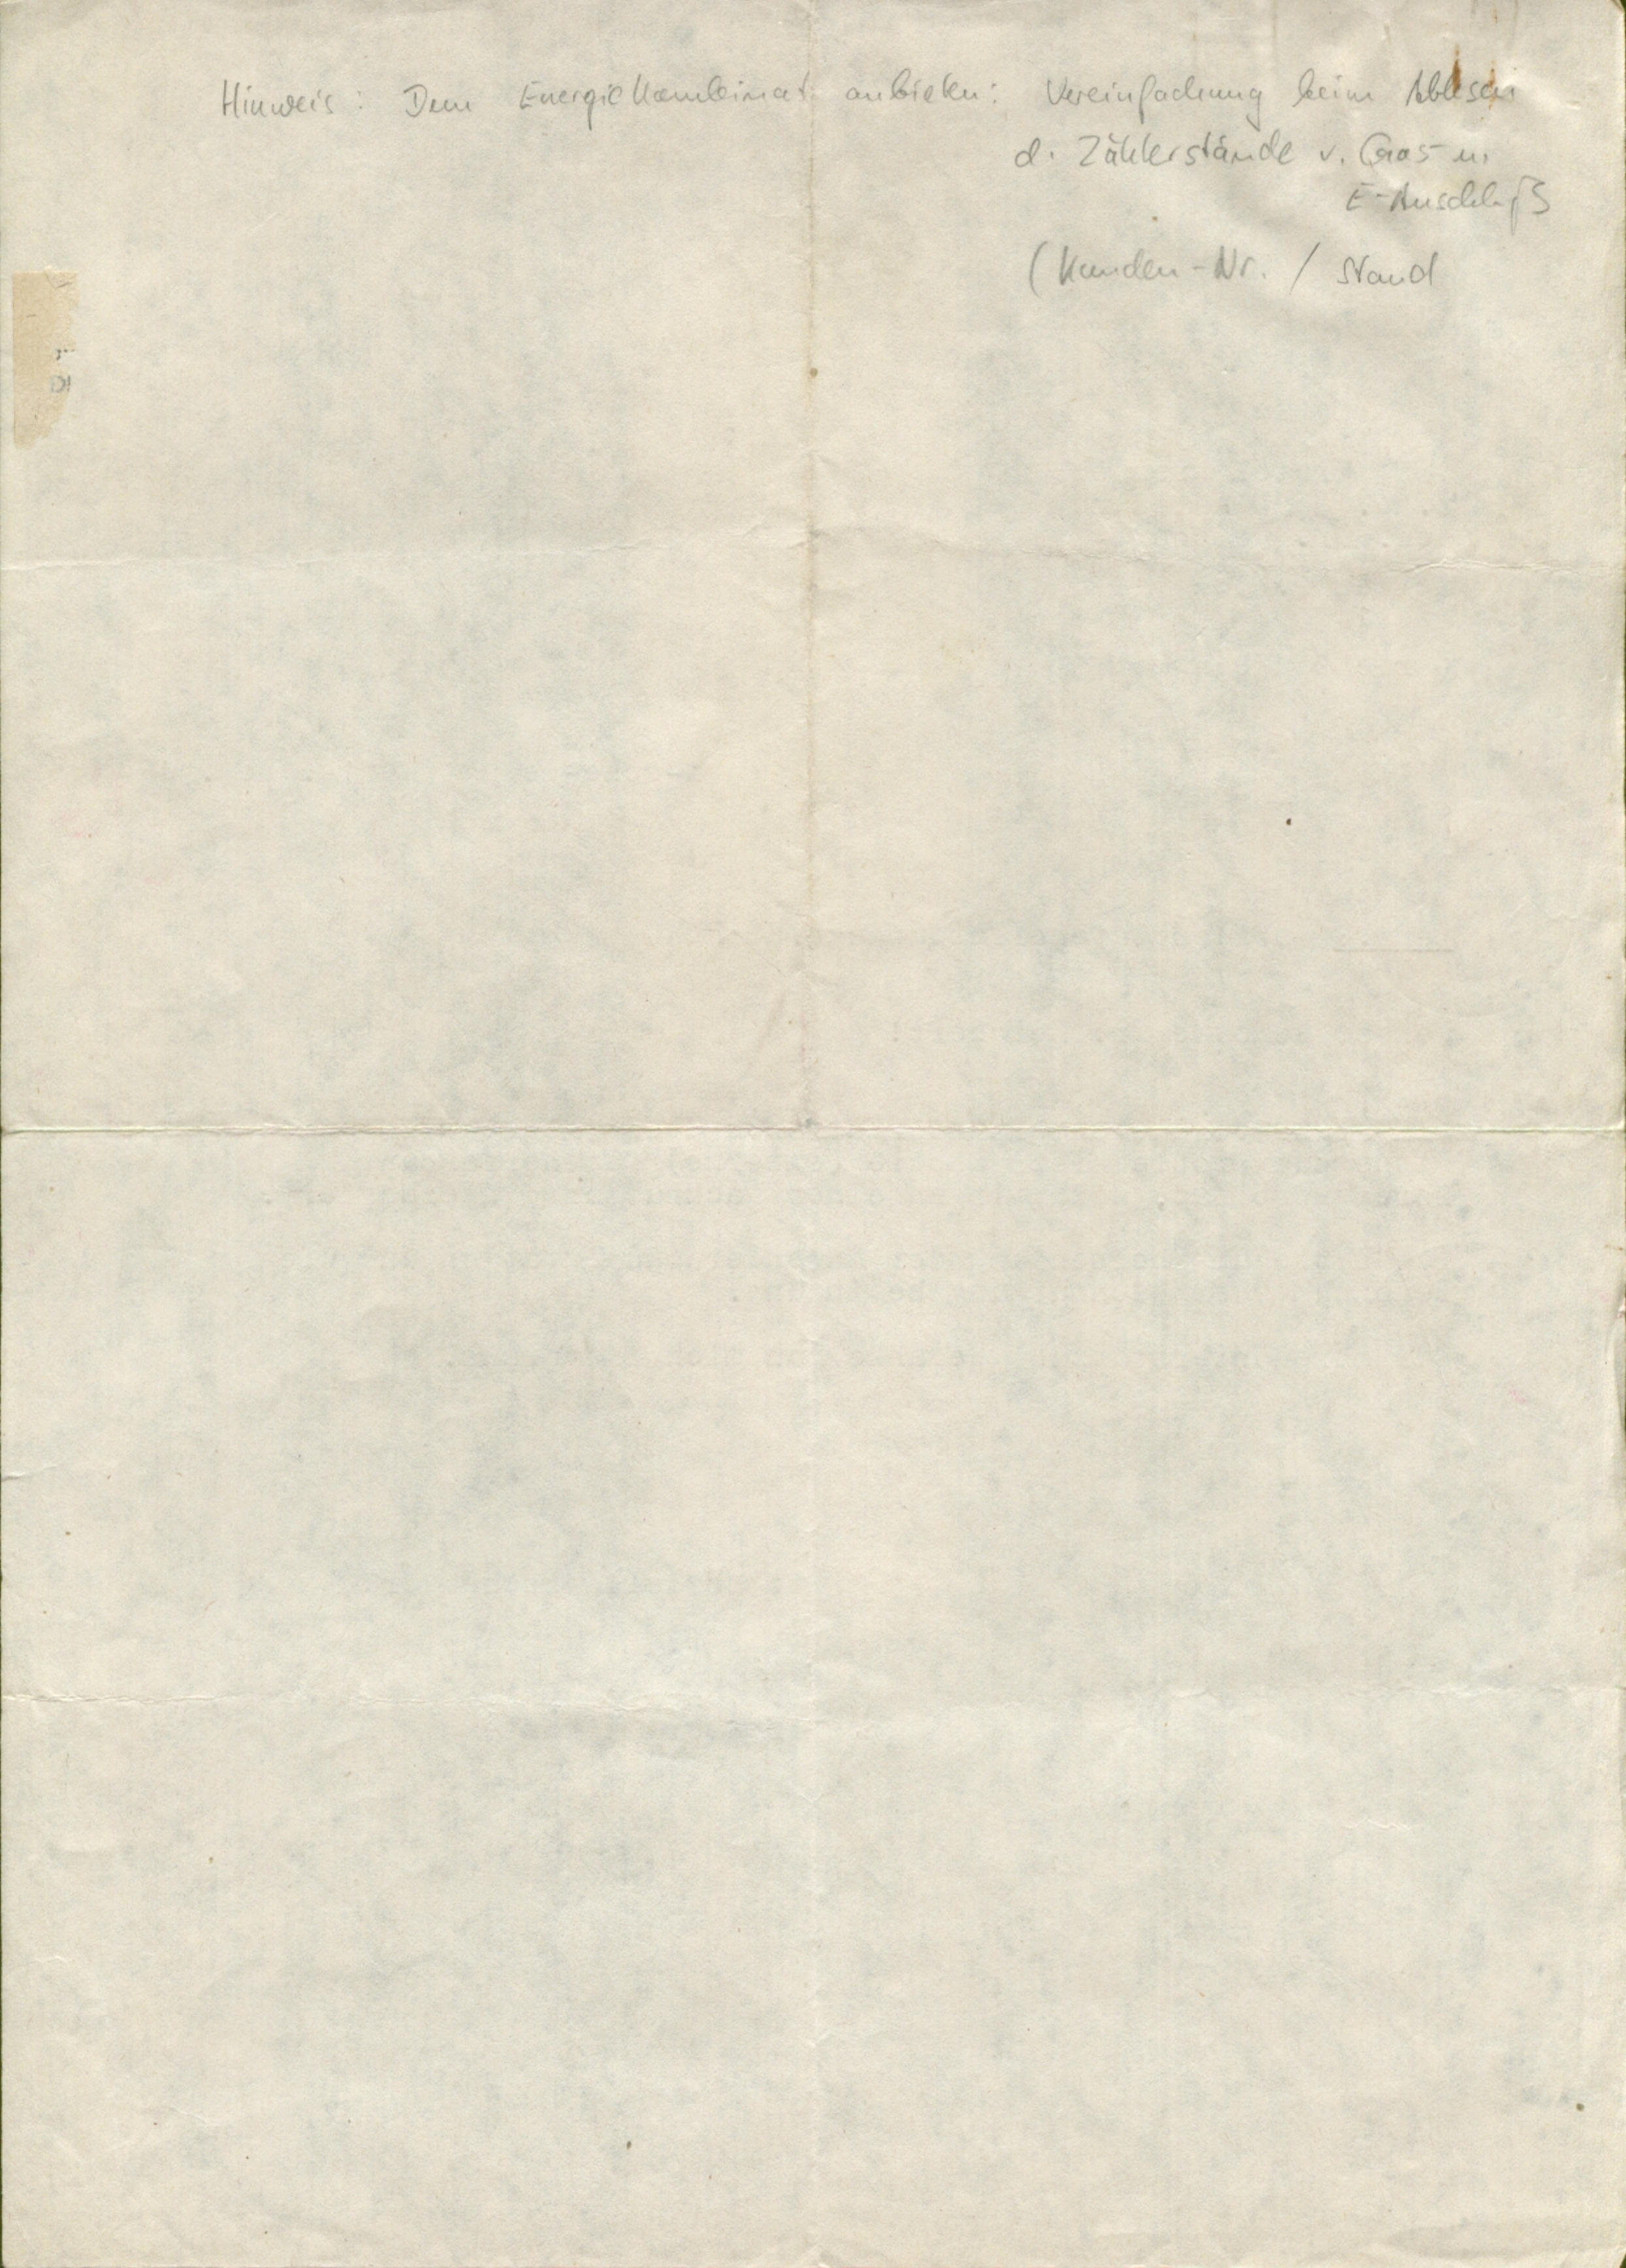 Hinweis: Dem Energiekombinat anbieten: Vereinfachung beim Ablesen
d. Zählerstände v. Gas u.
E-Anschluß
(Kunden-Nr. / Stand